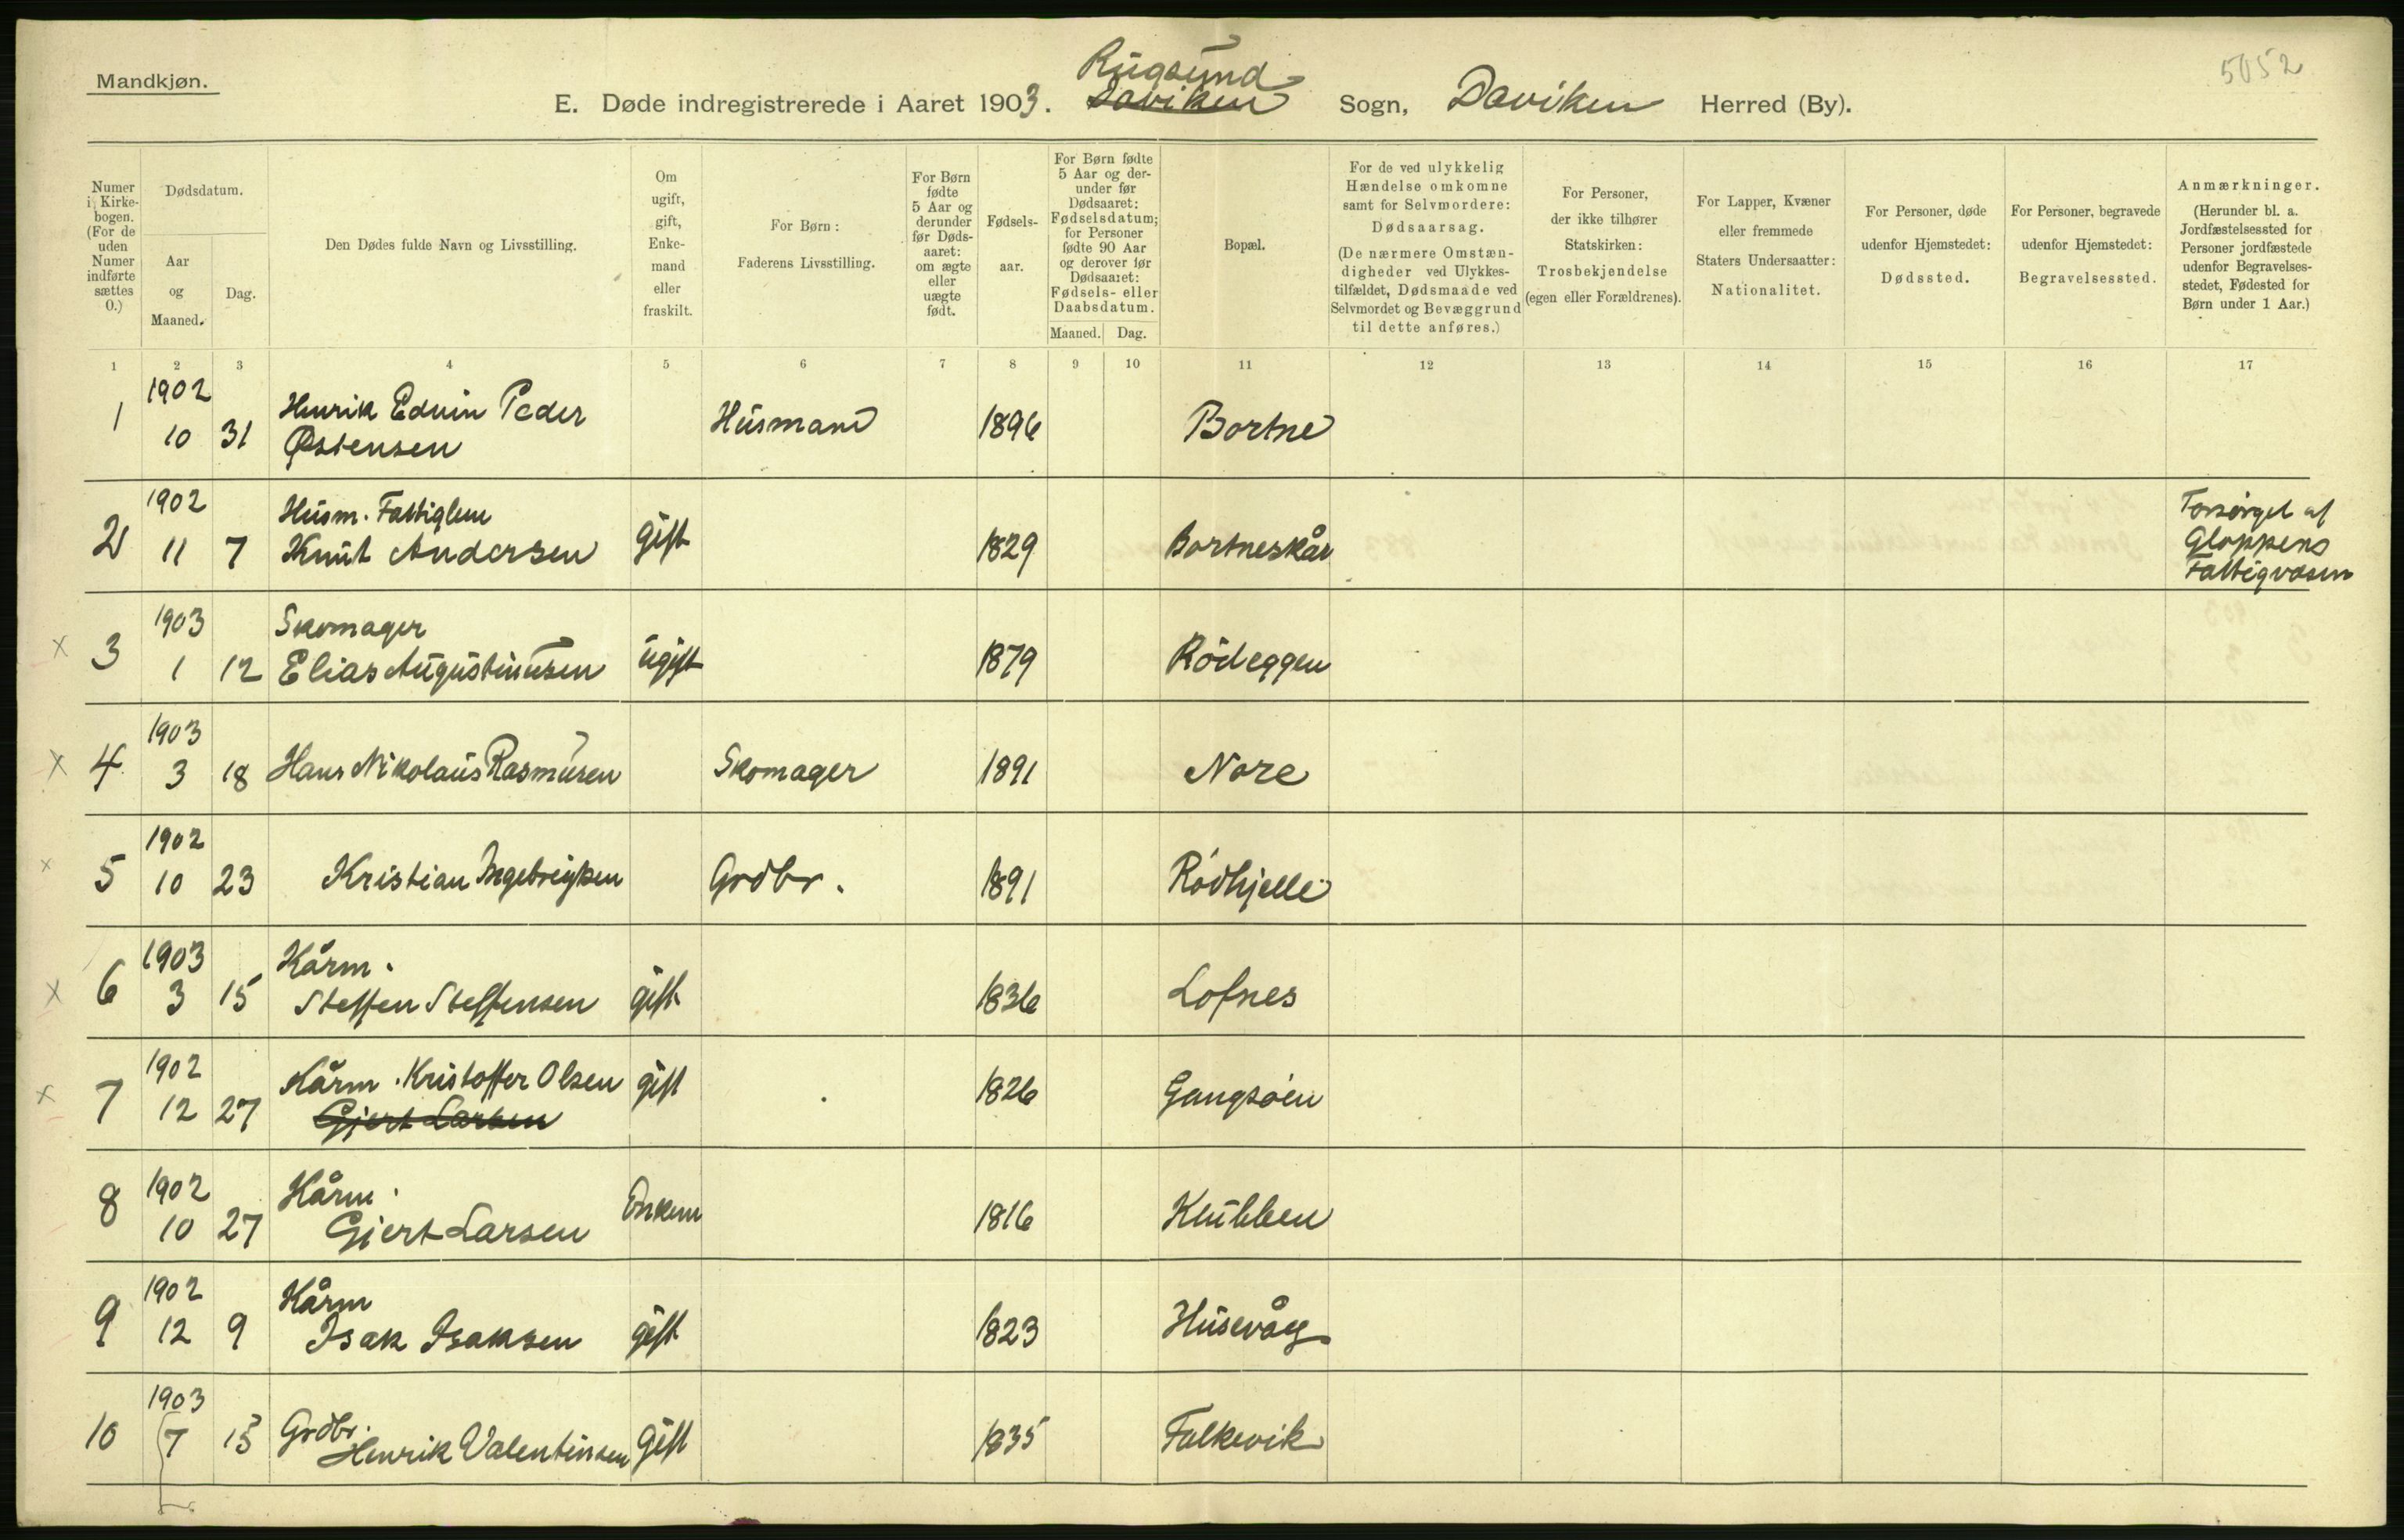 Mandkjøn.
5052
Rugsund
E. Døde indregistrerede i Aaret 1903. Daviken Sogn, Daviken Herred (By).
Numer i Kirkebogen. (For de uden Numer indførte sættes 0.)
Dødsdatum.
Aar og Maaned.
Dag.
Den Dødes fulde Navn og Livsstilling.
Om ugift, gift, Enkemand eller fraskilt.
For Børn:
Faderens Livsstilling.
For Børn fødte 5 Aar og derunder før Dødsaaret: om ægte eller uægte født.
Fødselsaar.
For Børn fødte 5 Aar og derunder før Dødsaaret: Fødselsdatum; for Personer fødte 90 Aar og derover før Dødsaaret: Fødsels- eller Daabsdatum.
Maaned. Dag.
Bopæl.
For de ved ulykkelig Hændelse omkomne samt for Selvmordere: Dødsaarsag.
(De nærmere Omstændigheder ved Ulykkestilfældet, Dødsmaade ved Selvmordet og Bevæggrund til dette anføres.)
For Personer, der ikke tilhører Statskirken: Trosbekjendelse (egen eller Forældrenes).
For Lapper, Kvæner eller fremmede Staters Undersaatter: Nationalitet.
For Personer, døde udenfor Hjemstedet: Dødssted.
For Personer, begravede udenfor Hjemstedet: Begravelsessted.
Anmærkninger.
(Herunder bl. a. Jordfæstelsessted for Personer jordfæstede udenfor Begravelsesstedet, Fødested for Børn under 1 Aar.)
1 2 3 4 5 6 7 8 9 10 11 12 13 14 15 16 17
1902
1 10 31 Henrik Edvin Peder Østensen Husmand 1896 Bortne
1902
2 11 7 Husm. Fattiglem
Knut Andersen gift 1829 Bortneskår Forsørget af
Gloppens
Fattigvæsen
1903 Skomager
x 3 1 12 Elias Augustinusen ugift 1879 Rödeggen
1903
x 4 3 18 Hans Nikolaus Rasmusen Skomager 1891 Nore
1902
x 5 10 23 Kristian Ingebrigtsen Grdbr. 1891 Rödhjelle
1903 Kårm.
x 6 3 15 Steffen Steffensen gift 1836 Lofnes
1902 Kårm. Kristoffer Olsen
x 7 12 27 Gjert Larsen gift 1826 Gangsöen
1902 Kårm.
8 10 27 Gjert Larsen Enkem 1816 Klubben
1902 Kårm
9 12 9 Isak Isaksen gift 1823 Husevåg
1903 Grdbr.
10 7 15 Henrik Valentinsen gift 1835 Falkevik